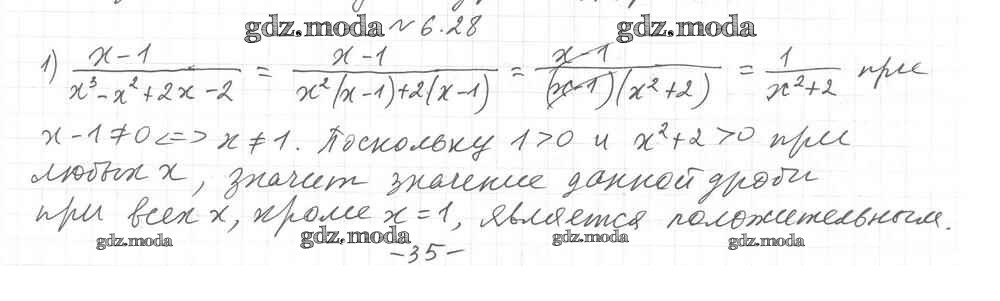 gdz.moda № 6.28 gdz.moda
1) (x-1)/(x³-x²+2x-2) = (x-1)/(x²(x-1)+2(x-1)) = (x-1)/((x-1)(x²+2)) = 1/(x²+2) при
x-1≠0 <=> x≠1. Поскольку 1>0 и x²+2>0 при
любых x, значит значение данной дроби
при всех x, кроме x=1, является положительным.
gdz.moda gdz.moda gdz.moda gdz.moda
-35-